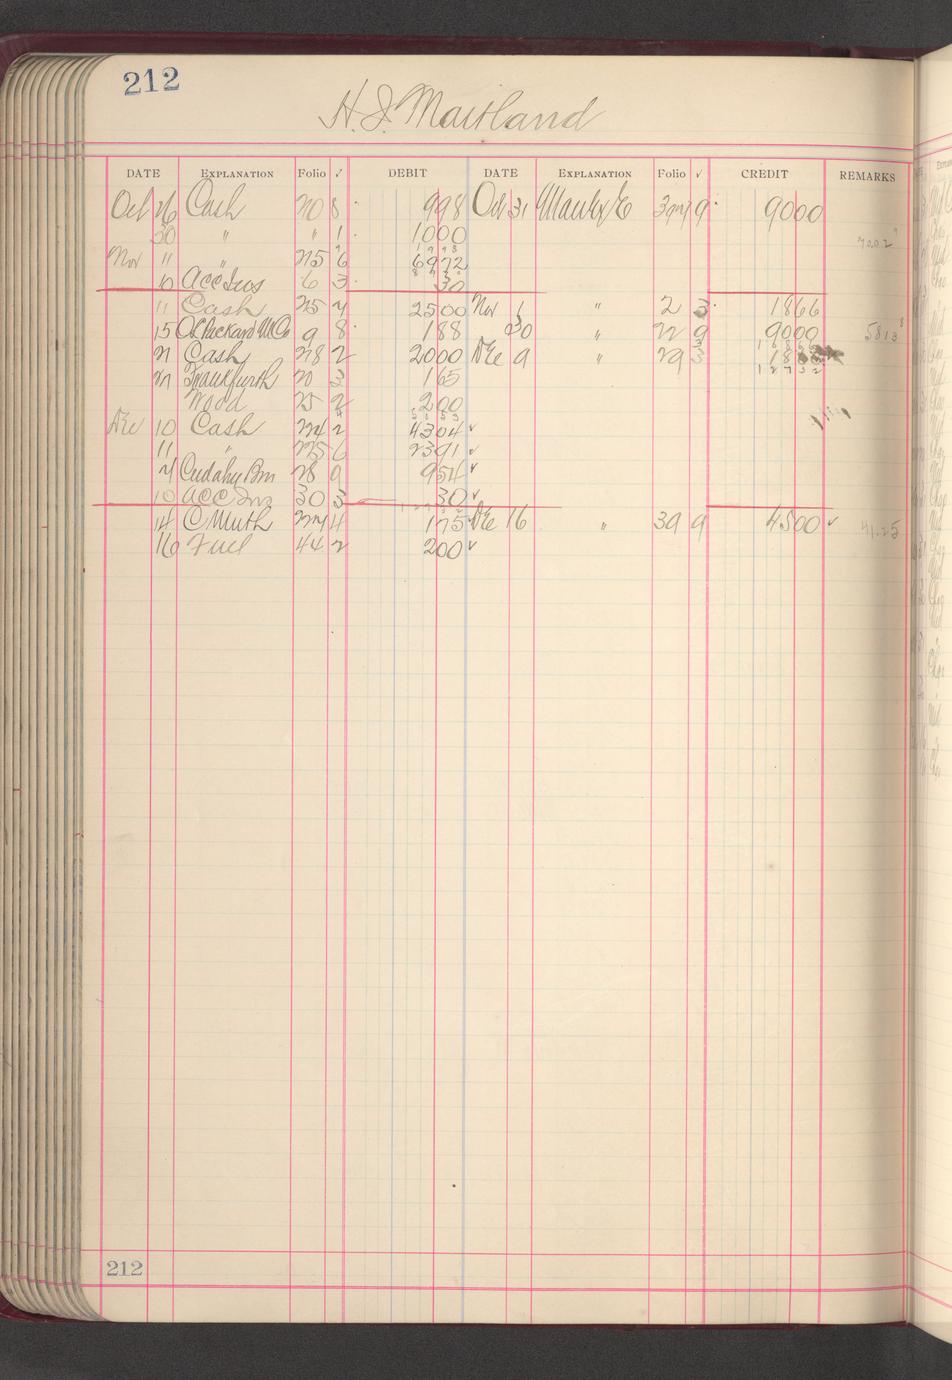 212
H. J. Maitland
DATE EXPLANATION Folio √ DEBIT DATE EXPLANATION Folio √ CREDIT REMARKS
Oct 26 Cash 20 8 998 Oct 31 9 9000
30 " " 1 1000 7002
Nov 11 " 25 6 6972
10 Acc Ins 6 3 30
11 Cash 25 4 2500 Nov 1 " 2 3 1866
15 O L Packard M Co 9 8 188 30 " 22 9 9000 5813
21 Cash 28 2 2000 Dec 9 " 29 3 18
27 Frankfurth 20 3 165 12732
Wood 25 2 200
Dec 10 Cash 24 2 4304 √
11 " 25 6 2391 √
4 Cudahy Bros 28 9 954 √
10 Acc Ins 30 3 30 √
14 C Muth 24 4 175 Dec 16 " 39 9 4500 √ 4125
16 Fuel 44 2 200 √
212